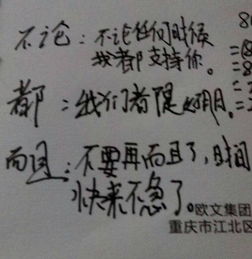 不论：不论任何时候
我都支持你。
都：我们都明。
而且：不要再而且了，时间
快来不急了。
欧文集团
重庆市江北区